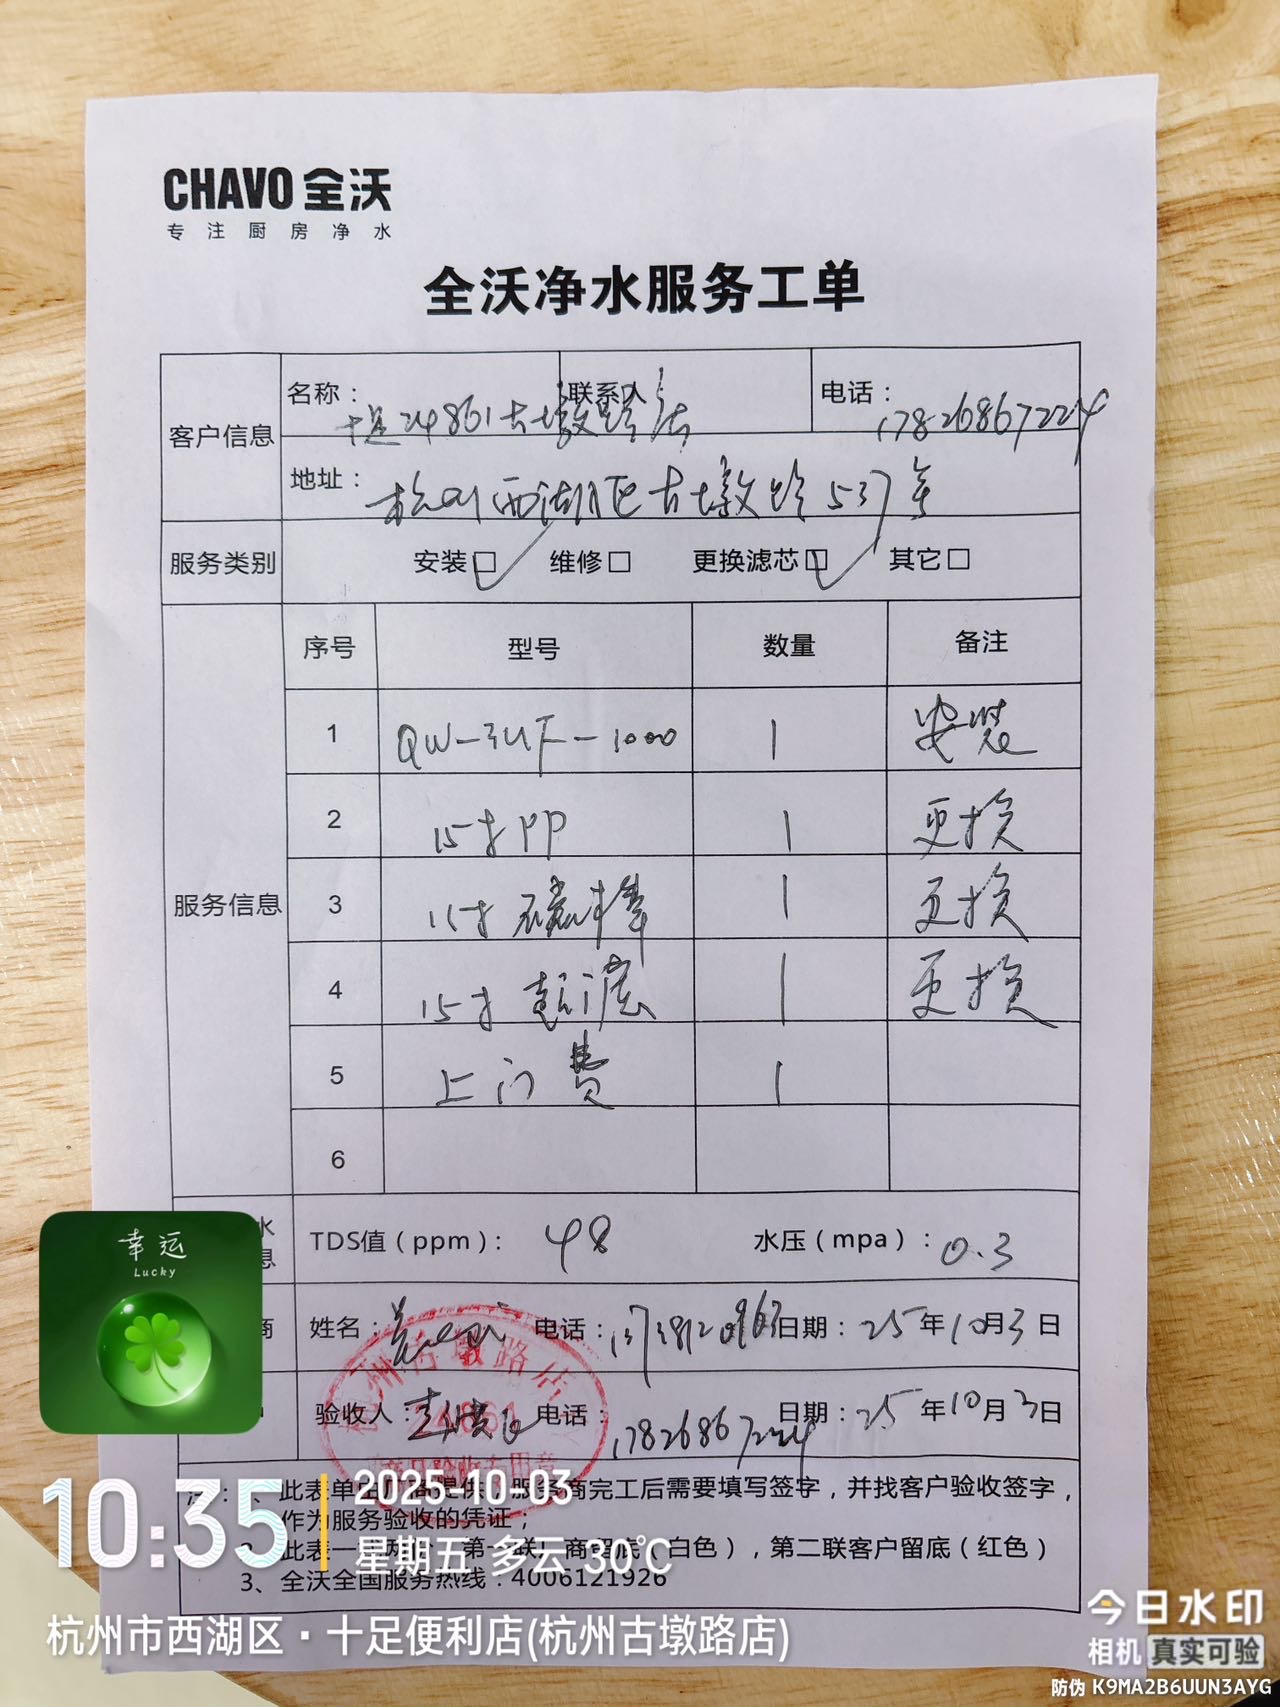 CHAVO 全沃
专注厨房净水
全沃净水服务工单
客户信息
名称： 十足24861古墩路店 联系人 电话： 17826867224
地址： 杭州西湖区古墩路537号
服务类别 安装☑ 维修□ 更换滤芯☑ 其它□
服务信息
序号 型号 数量 备注
1 QW-3UF-1000 1 安装
2 15寸PP 1 更换
3 15寸碳棒 1 更换
4 15寸 1 更换
5 上门费 1
6
水
息 TDS值（ppm）： 48 水压（mpa）： 0.3
商 姓名： 电话： 日期： 25年10月3日
验收人： 电话： 17826867224 日期： 25年10月3日
杭州古墩路店
24861
商品验收专用章
此表单由厂商提供，服务商完工后需要填写签字，并找客户验收签字，
作为服务验收的凭证；
此表一 第一联厂商留底（白色），第二联客户留底（红色）
3、全沃全国服务热线：4006121926
幸运
Lucky
10:35
2025-10-03
星期五 多云 30℃
杭州市西湖区·十足便利店(杭州古墩路店)
今日水印
相机 真实可验
防伪 K9MA2B6UUN3AYG